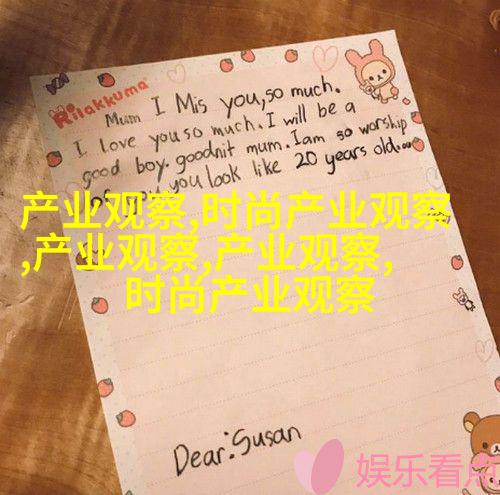 Rilakkuma
Mum I Mis you,so much.
I love you so much. I will be a
good boy. goodnit mum. Iam so worship
you look like 20 years old.
产业观察,时尚产业观察
,产业观察,产业观察,
时尚产业观察
Dear:Susan
娱乐看点